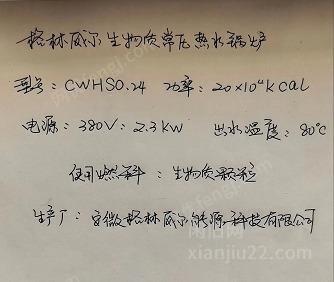 格林瓦尔生物质常压热水锅炉
型号：CWHS0.24 功率：20×10⁴kcal
电源：380V：2.3kw 出水温度：80℃
使用燃料：生物质颗粒
生产厂：安徽格林瓦尔能源科技有限公司
xianjiu22.com